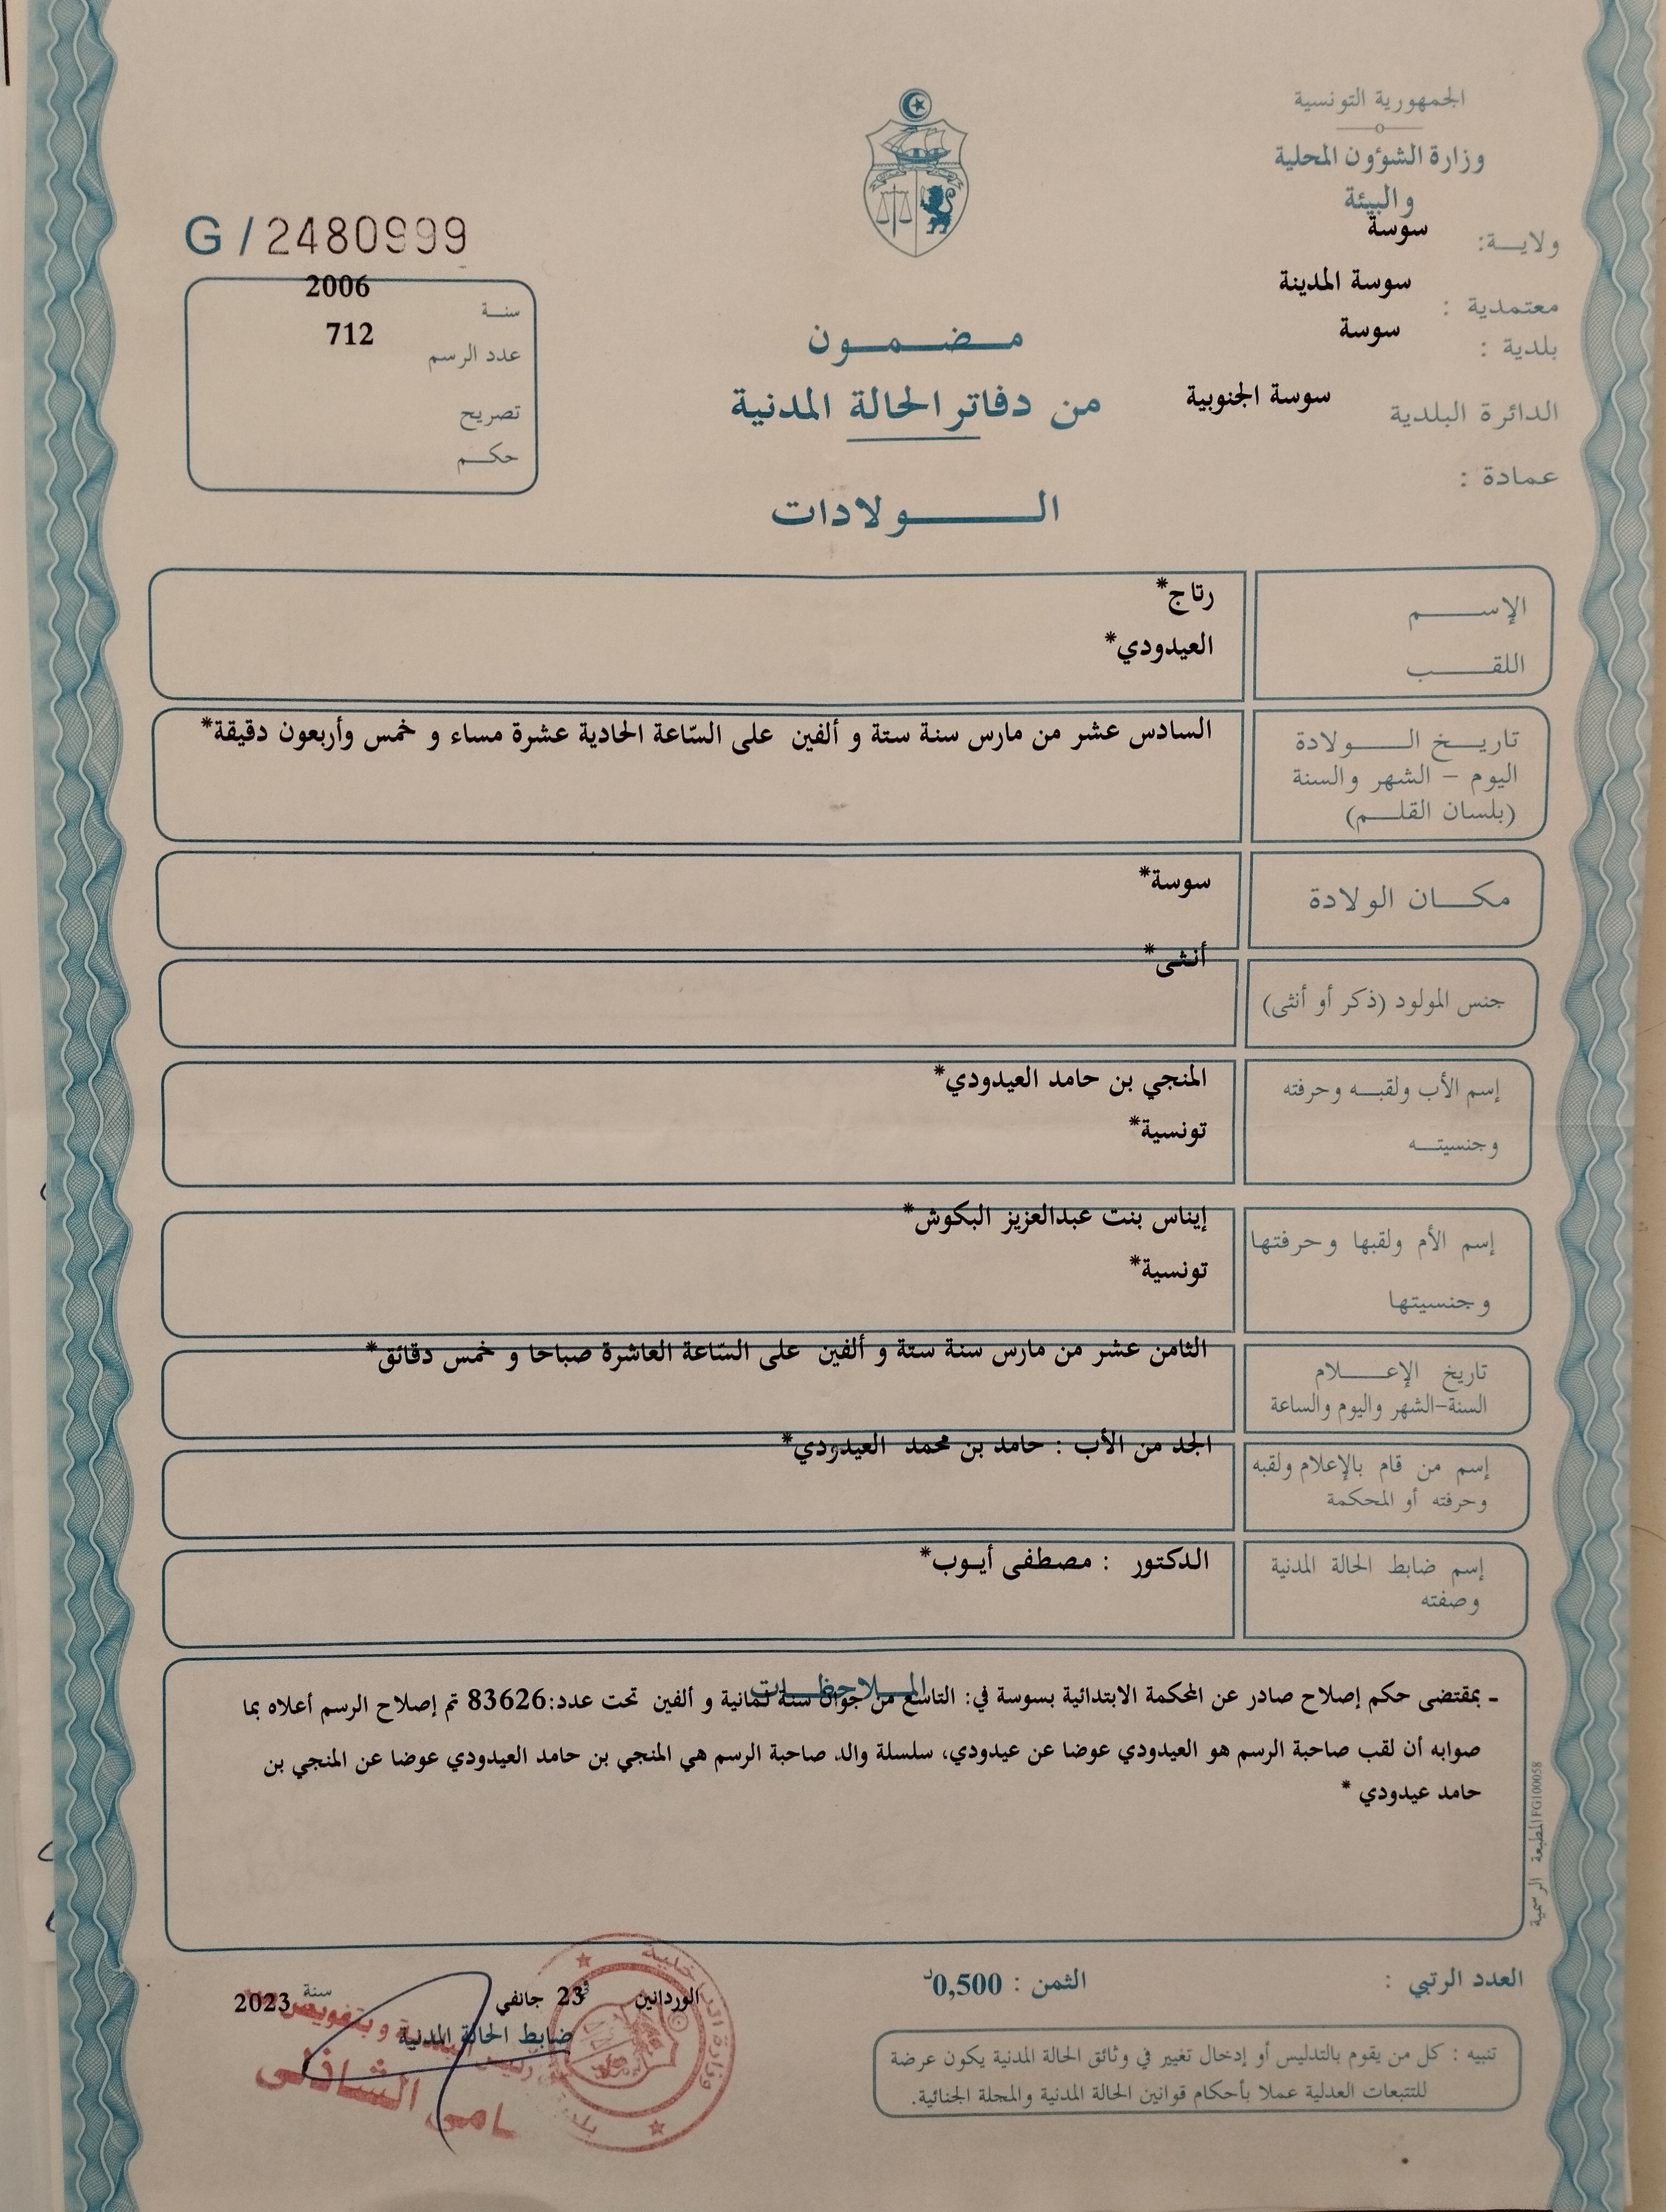 الجمهورية التونسية
وزارة الشؤون المحلية
والبيئة
ولاية: سوسة
معتمدية : سوسة المدينة
بلدية : سوسة
الدائرة البلدية سوسة الجنوبية
عمادة :
مضمون
من دفاتر الحالة المدنية
الولادات
G / 2480999
سنة 2006
عدد الرسم 712
تصريح
حكم
الإسم رتاج*
اللقب العيدودي*
تاريخ الولادة السادس عشر من مارس سنة ستة و ألفين على السّاعة الحادية عشرة مساء و خمس وأربعون دقيقة*
اليوم - الشهر والسنة
(بلسان القلم)
مكان الولادة سوسة*
جنس المولود (ذكر أو أنثى) أنثى*
إسم الأب ولقبه وحرفته المنجي بن حامد العيدودي*
وجنسيته تونسية*
إسم الأم ولقبها وحرفتها إيناس بنت عبدالعزيز البكوش*
وجنسيتها تونسية*
تاريخ الإعلام الثامن عشر من مارس سنة ستة و ألفين على السّاعة العاشرة صباحا و خمس دقائق*
السنة-الشهر واليوم والساعة
إسم من قام بالإعلام ولقبه الجد من الأب : حامد بن محمد العيدودي*
وحرفته أو المحكمة
إسم ضابط الحالة المدنية الدكتور : مصطفى أيوب*
وصفته
الملاحظات
- بمقتضى حكم إصلاح صادر عن المحكمة الابتدائية بسوسة في: التاسع من جوان سنة ثمانية و ألفين تحت عدد:83626 تم إصلاح الرسم أعلاه بما
صوابه أن لقب صاحبة الرسم هو العيدودي عوضا عن عيدودي، سلسلة والد صاحبة الرسم هي المنجي بن حامد العيدودي عوضا عن المنجي بن
حامد عيدودي *
المطبعة الرسمية FG100058
العدد الرتبي :
الثمن : 0,500د
الوردانين في 23 جانفي سنة 2023
ضابط الحالة المدنية
تنبيه : كل من يقوم بالتدليس أو إدخال تغيير في وثائق الحالة المدنية يكون عرضة
للتتبعات العدلية عملا بأحكام قوانين الحالة المدنية والمجلة الجنائية.
وبتفويض
سامي الشاذلي